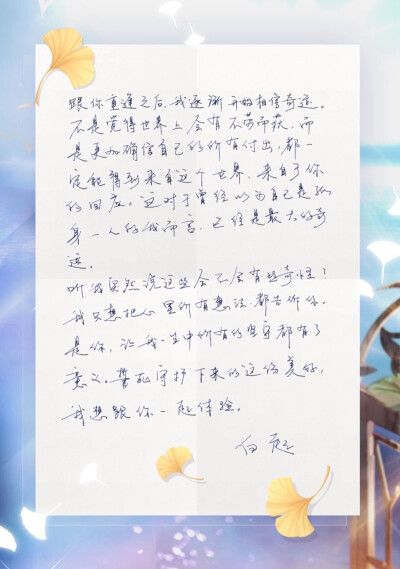 跟你重逢之后,我逐渐开始相信奇迹。
不是觉得世界上会有不劳而获,而
是更加确信自己的所有付出,都一
定能得到来自这个世界、来自于你
的回应。这对于曾经以为自己是孤
身一人的我而言,已经是最大的奇
迹。
听我突然说这些会不会有些奇怪!
我只想把心里所有想法,都告诉你。
是你,让我一生中所有的坚守都有了
意义。誓死守护下来的这份美好,
我想跟你一起体验。
白起